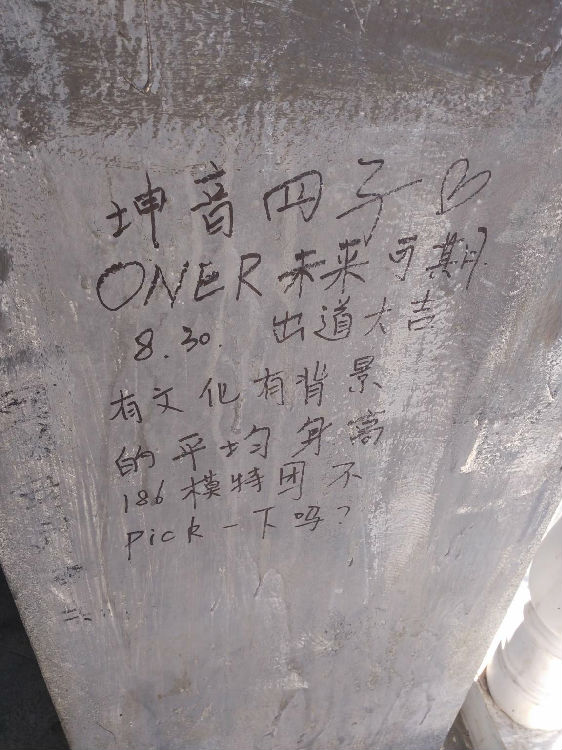 坤音四子
ONER 未来可期
8.30. 出道大吉
有文化有背景
的平均身高
186模特团不
Pick一下吗?